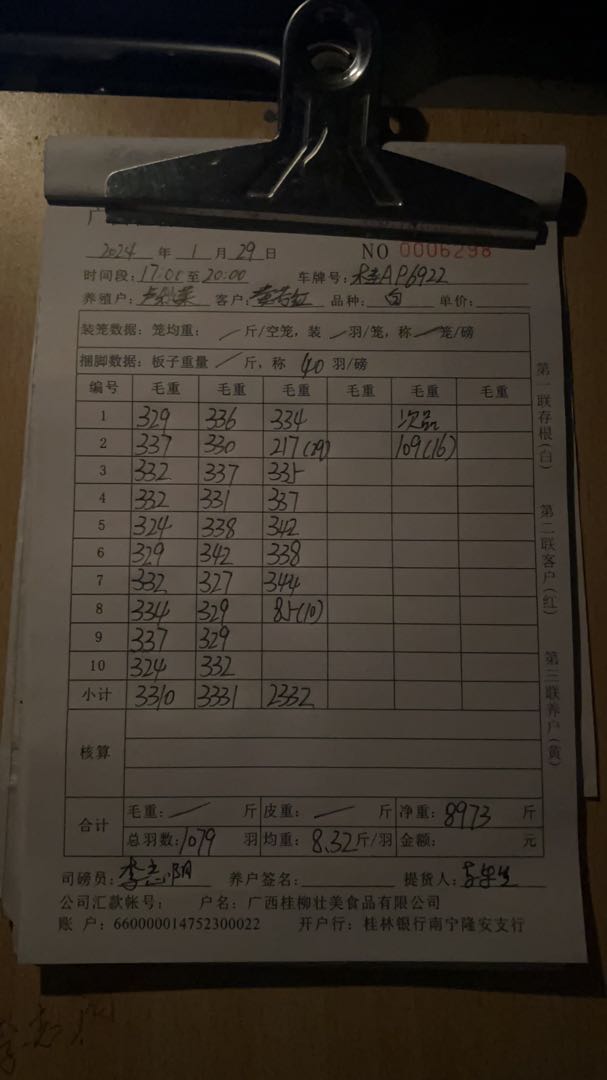 广
2024 年 1 月 29 日 NO 0006298
时间段: 17:05 至 20:00 车牌号: AP6922
养殖户: 客户: 品种: 白 单价:
装笼数据: 笼均重: / 斤/空笼, 装 / 羽/笼, 称 / 笼/磅
捆脚数据: 板子重量 / 斤, 称 40 羽/磅
编号 毛重 毛重 毛重 毛重 毛重 毛重
1 329 336 334 次品
2 337 330 217(29) 109(16)
3 332 337 335
4 332 331 337
5 324 338 342
6 329 342 338
7 332 327 344
8 334 329 85(10)
9 337 329
10 324 332
小计 3310 3331 2332
核算
合计 毛重: / 斤 皮重: / 斤 净重: 8973 斤
总羽数: 1079 羽 均重: 8.32 斤/羽 金额: 元
司磅员: 李志阳 养户签名: 提货人:
公司汇款帐号: 户名: 广西桂柳壮美食品有限公司
账 户: 660000014752300022 开户行: 桂林银行南宁隆安支行
第一联存根(白)
第二联客户(红)
第三联养户(黄)